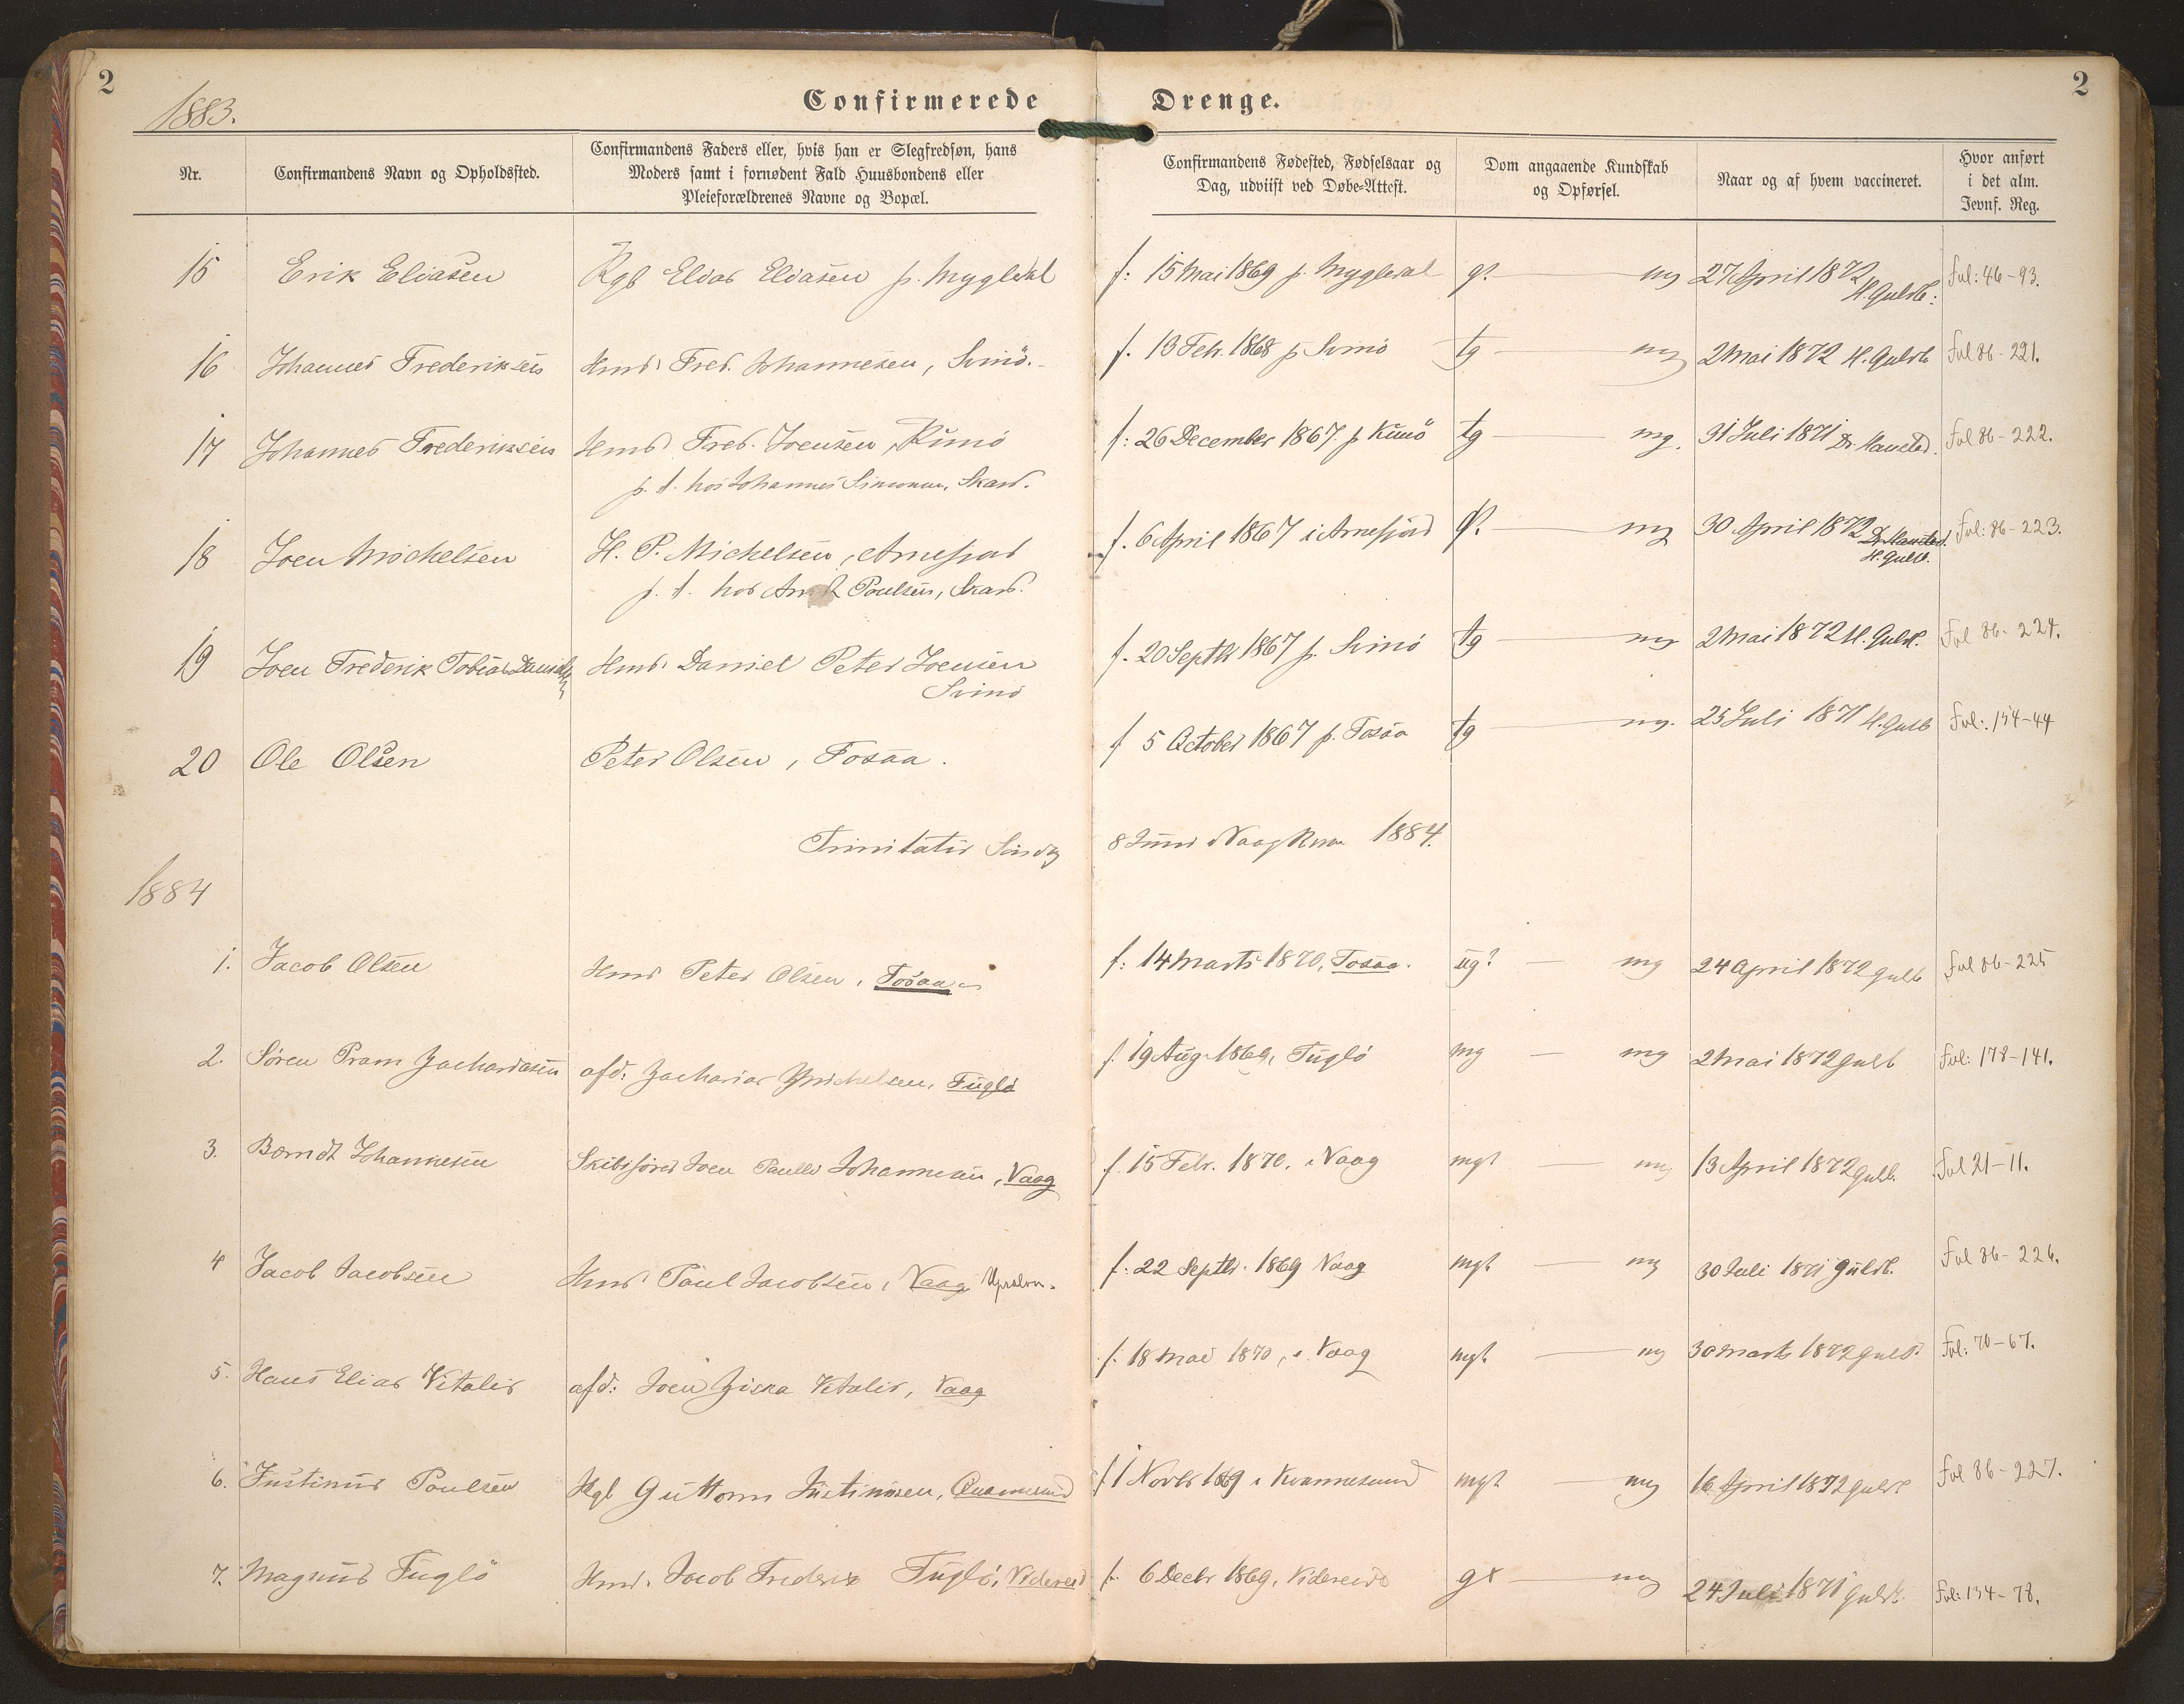 2
1883.
Confirmerede Drenge.
2
Nr.
Confirmandens Navn og Opholdssted.
Confirmandens Faders eller, hvis han er Slegfredsøn, hans
Moders samt i fornødent Fald Huusbondens eller
Pleieforældrenes Navne og Bopæl.
Confirmandens Fødested, Fødselsaar og
Dag, udviist ved Døbe-Attest.
Dom angaaende Kundskab
og Opførsel.
Naar og af hvem vaccineret.
Hvor anført
i det alm.
Jevnf. Reg.
15 Erik Eliasen Kgb Elias Eliasen p. Mygledal f: 15 Mai 1869 p. Mygledal g? mg 27 April 1872 H. Guldb: Fol: 46-93.
16 Johannes Frederiksen Hmd Fred. Johannesen, Svinö. f. 13 Feb. 1868 p Svinö tg mg 2 Mai 1872 H. Guldb Fol 86-221.
17 Johannes Frederiksen Hmd Fred. Joensen, Kunö f: 26 December 1867 p Kunö tg mg. 31 Juli 1871 Dr. Fol 86-222.
p. t. hos Johannes Simonsen, Skard.
18 Joen Michelsen H. P. Michelsen, Arnefjord f. 6 April 1867 i Arnefjord g?. mg 30 April 1872 H. Guldb. Fol: 86-223.
p. t. hos Poulsen, Skard.
19 Joen Frederik Tobias Hmd. Daniel Peter Joensen f. 20 Septbr 1867 p. Svinö tg mg 2 Mai 1872 H. Guldb. Fol 86-224.
Svinö
20 Ole Olsen Peter Olsen, Fosaa. f 5 October 1867 p. Fosaa tg mg. 25 Juli 1871 H. Guldb Fol: 154-44
Trinitatis Søndag 8 Juni i Vaag 1884.
1884
1. Jacob Olsen Hmd Peter Olsen, Fosaa f: 14 Marts 1870, Fosaa. ug? mg 24 April 1872 Guldb Fol 86-225
2. Sören Pram Zachariasen afd: Zacharias Michelsen, Fuglö f. 19 Aug. 1869, Fuglö mg mg 2 Mai 1872 Guldb Fol: 178-141.
3. Berndt Johannesen Joen Johannesen, Vaag f. 15 Febr. 1870. i Vaag mg? mg 13 April 1872 Guldb. Fol 21-11.
4 Jacob Jacobsen Hmd Poul Jacobsen, Vaag f. 22 Septbr. 1869 Vaag mg? mg 30 Juli 1871 Guldb. Fol 86-226.
5. Hans Elias Vitalis afd: Joen Ziska Vitalis, Vaag f. 18 Mai 1870, i Vaag mg? mg 30 Marts 1872 Guldb. Fol: 70-67.
6. Justinus Poulsen Kgb Guttorm Justinusen, Quannesund f 1 Novbr 1869 i Kvannesund mg? mg 16 April 1872 Guldb Fol 86-227.
7. Magnus Fuglö Hmd. Jacob Frederik Fuglö, Videreid f. 6 Decbr 1869, Videreide g+ mg 24 Juli 1871 Guldb. Fol: 134-78.